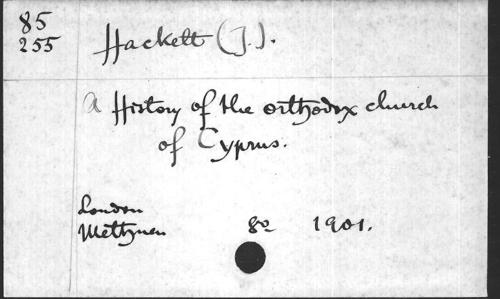 85
255
Hackett (J.).
A History of the orthodox church
of Cyprus.
London
Methuen 8º 1901.